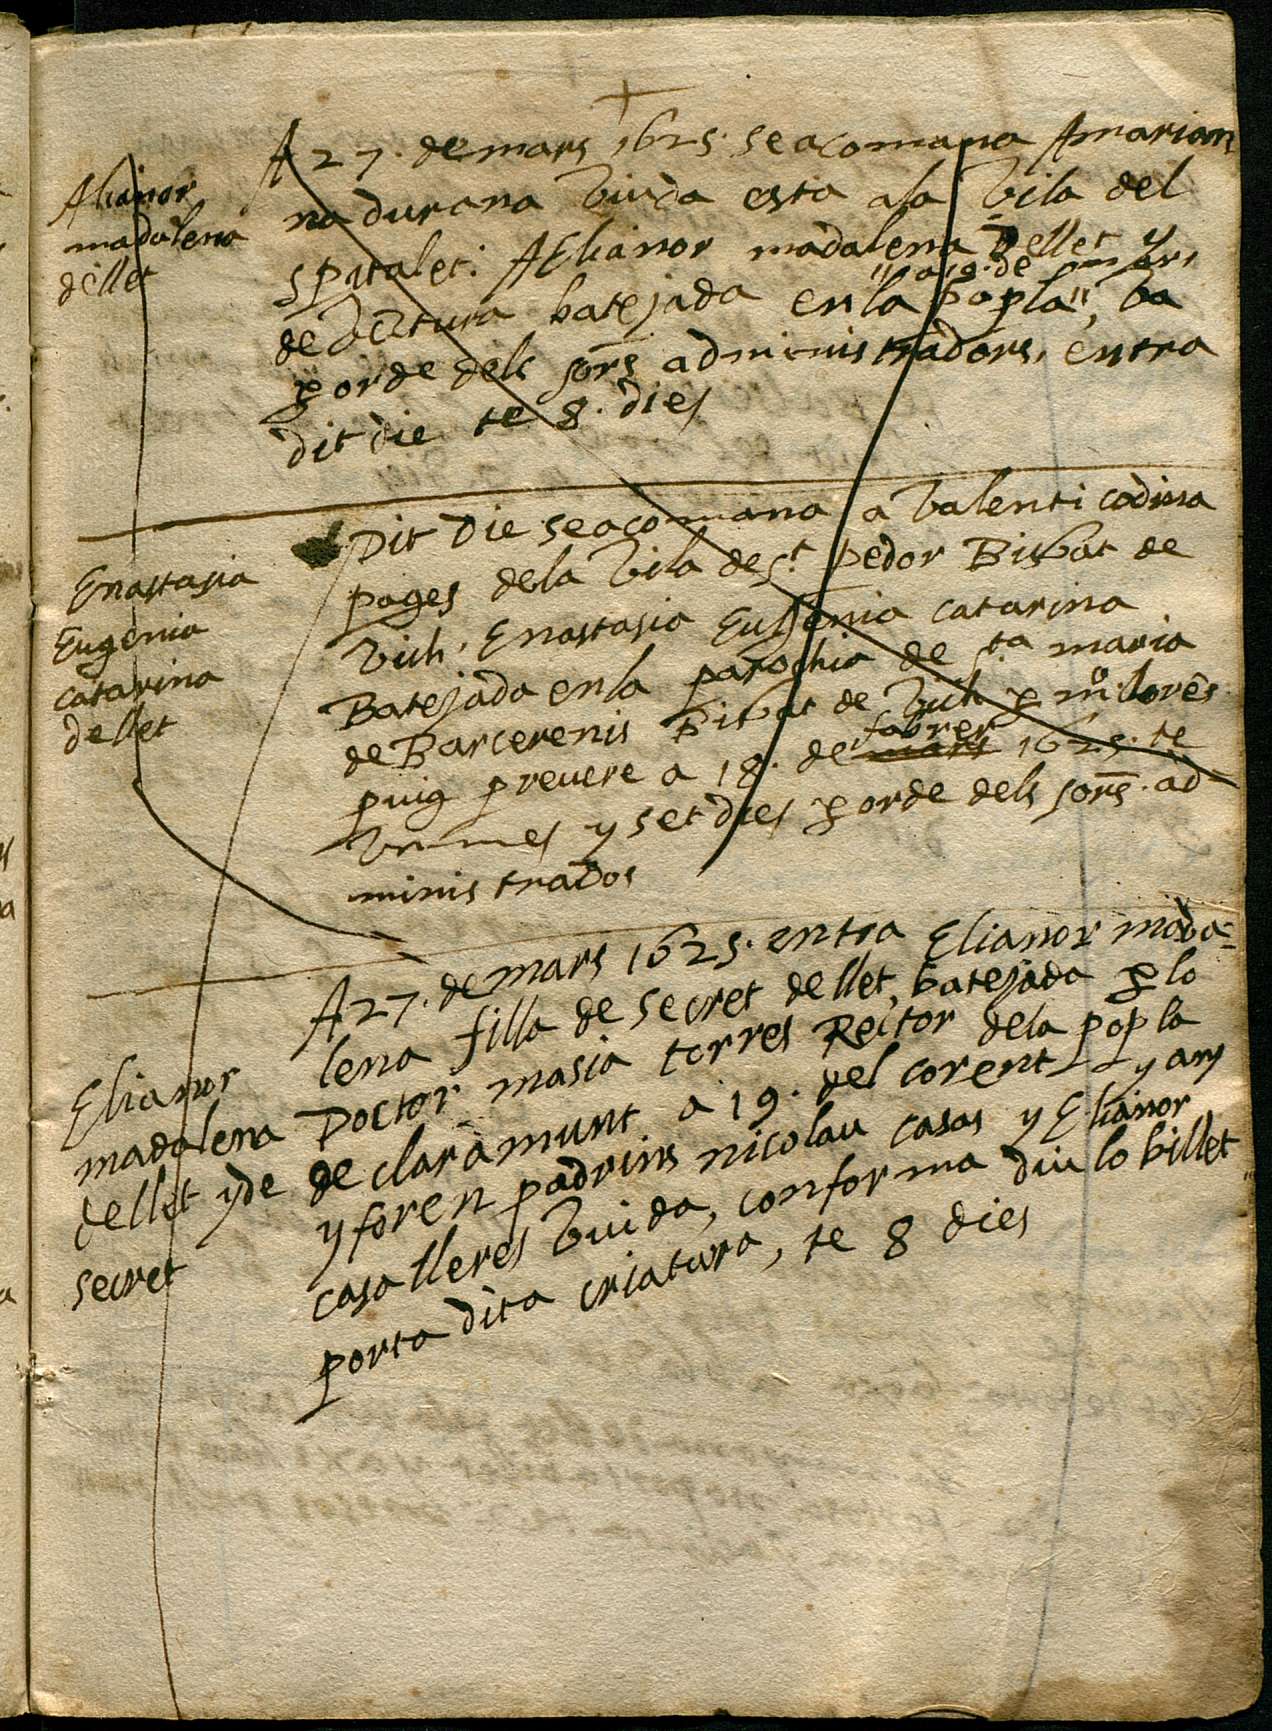 A 27. de mars 1625. se acomana A marian
na durana viuda esta a la vila del
spitalet. A Elianor madalena dellet y
a 19. de
de batejada en la popla, va
per orde dels sors administradors, entra
dit die te 8. dies
Alianor
madalena
dellet
Dit die se acomana a valenti codina
pages de la vila de st. pedor Bisbat de
vich, Enastasia Eugenia catarina
Batejada en la parochia de sta maria
de Barcerenis Bisbat de vich per mo. lorens
puig prevere a 18. de mars fabrer 1625. te
un mes y set dies per orde dels sors. ad
ministrados
Enastasia
Eugenia
catarina
dellet
A 27. de mars 1625. entra Elianor mada=
lena filla de secret dellet, batejada per lo
Doctor masia torres Rector dela popla
de claramunt a 19. del corent y any
y foren padrins nicolau casas y Elianor
casa lleres viuda, conforma diu lo billet
porta dita criatura, te 8 dies
Elianor
madalena
dellet y de
secret